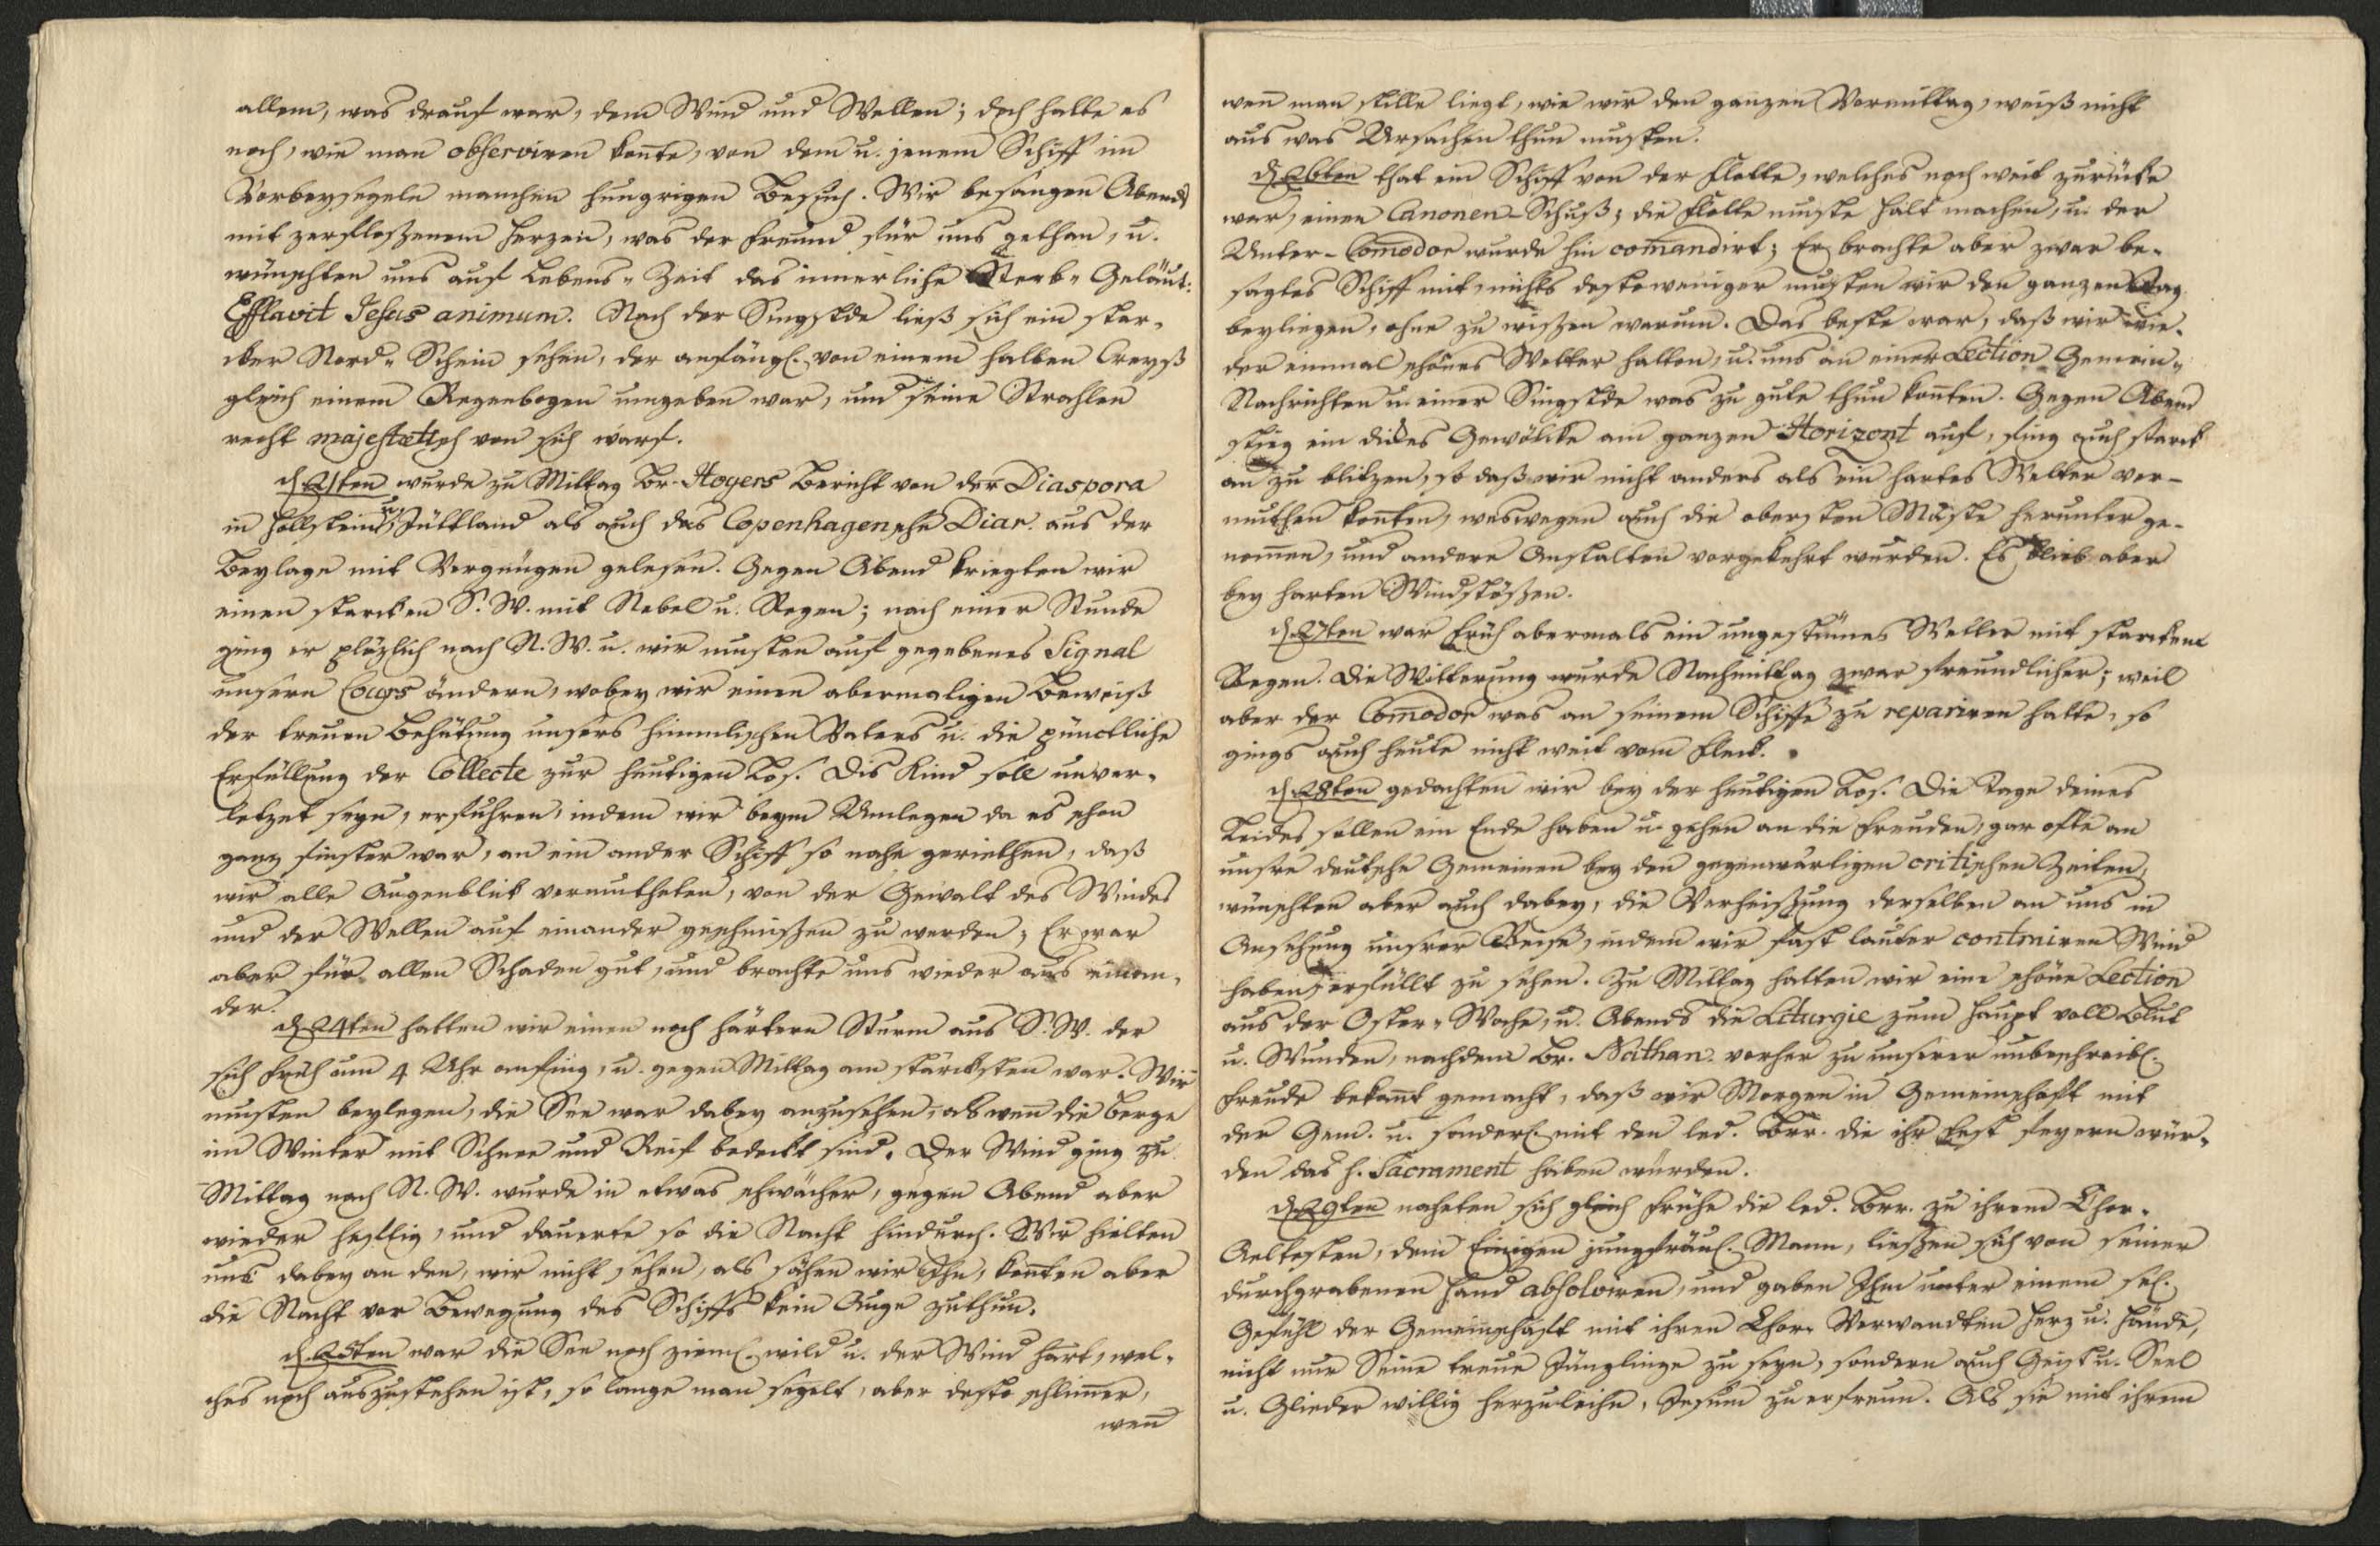 allem, was drauf war, dem Wind und Wellen; doch hatte es
noch, wie man observiren konte, von dem u. jenem Schiff im
Vorbeysegeln manchen hungrigen Besuch. Wir besangen Abends
mit zerfloßenem Herzen, was der Freund für uns gethan, u.
wünschten uns auf Lebens-Zeit das innerliche Sterb-Geläut:
Efflavit Jesus animum. Nach der Singstde ließ sich ein star-
cker Nord-Schein sehen, der anfängl. von einem halben Creyß
gleich einem Regenbogen umgeben war, und seine Strahlen
recht majestætisch von sich warf.
d. 21ten wurde zu Mittag Br. Hogers Bericht von der Diaspora
in Hollstein u. Jüttland als auch das Copenhagensche Diar. aus der
Beylage mit Vergnügen gelesen. Gegen Abend kriegten wir
einen starcken S. W. mit Nebel u. Regen; nach einer Stunde
ging er plözlich nach N. W. u. wir musten auf gegebenes Signal
unsern Cours ändern, wobey wir einen abermaligen Beweiß
der treuen Behütung unsers himmlischen Vaters u. die pünctliche
Erfüllung der Collecte zur heutigen Los. Dis Kind soll unver-
letzet seyn, erfuhren, indem wir beym Umlegen da es schon
ganz finster war, an ein ander Schiff so nahe geriethen, daß
wir alle Augenblick vermutheten, von der Gewalt des Windes
und der Wellen auf einander geschmißen zu werden; Er war
aber für allen Schaden gut, und brachte uns wieder aus einan-
der.
d. 24ten hatten wir einen noch härtern Sturm aus S. W. der
sich früh um 4 Uhr anfing, u. gegen Mittag am stärcksten war. Wir
musten beylegen, die See war dabey anzusehen, als wen die Berge
im Winter mit Schnee und Reif bedeckt sind. Der Wind ging zu
Mittag nach N. W. wurde in etwas schwächer, gegen Abend aber
wieder hefftig, und dauerte so die Nacht hindurch. Wir hielten
uns dabey an den, wir nicht sehen, als sähen wir Ihn, konten aber
die Nacht vor Bewegung des Schiffs kein Auge zuthun.
d. 25ten war die See noch zieml. wild u. der Wind hart, wel-
ches noch auszustehen ist, so lange man segelt, aber desto schlimer,
wen
wen man stille liegt, wie wir den ganzen Vormittag, weiß nicht
aus was Ursachen thun musten.
d. 26ten that ein Schiff von der Flotte, welches noch weit zurücke
war, einen Canonen-Schuß; die Flotte muste halt machen, u. der
Unter-Comodor wurde hin comandirt; Er brachte aber zwar be-
sagtes Schiff mit, nichts destoweniger musten wir den ganzen Tag
beyliegen, ohne zu wißen warum. Das beste war, daß wir wie-
der einmal schönes Wetter hatten, u. uns an einer Lection Gemein-
Nachrichten u. einer Singstde was zu gute thun konten. Gegen Abend
stieg ein dickes Gewölcke am ganzen Horizont auf, fing auch starck
an zu blitzen, so daß wir nicht anders als ein hartes Wetter ver-
muthen konten, weswegen auch die obersten Maste herunter ge-
nomen, und andere Anstalten vorgekehrt wurden. Es blieb aber
bey harten Windstößen.
d. 27ten war früh abermals ein ungestümes Wetter mit starckem
Regen. Die Witterung wurde Nachmittag zwar freundlicher; weil
aber der Comodor was an seinem Schiffe zu repariren hatte, so
gings auch heute nicht weit vom Fleck.
d. 28ten gedachten wir bey der heutigen Los. Die Tage deines
Leides sollen ein Ende haben u. gehen an die Freuden, gar ofte an
unsre deutsche Gemeinen bey den gegenwärtigen critischen Zeiten,
wünschten aber auch dabey, die Verheißung derselben an uns in
Ansehung unsrer Reise, indem wir fast lauter contrairen Wind
haben, erfüllt zu sehen. Zu Mittag hatten wir eine schöne Lection
aus der Oster-Woche, u. Abends die Liturgie zum Haupt voll Blut
u. Wunden, nachdem Br. Nathan. vorher zu unserer unbeschreibl.
Freude bekant gemacht, daß wir Morgen in Gemeinschaft mit
der Gem. u. sonderl. mit den led. Brr. die ihr Fest feyern wür-
den das h. Sacrament haben würden.
d. 29ten naheten sich gleich frühe die led. Brr. zu ihrem Chor-
Aeltesten, dem Einigen jungfräul. Mann, ließen sich von seiner
durchgrabenen Hand absolviren, und gaben Ihm unter einem sel.
Gefühl der Gemeinschaft mit ihren Chor-Verwandten Herz u. Hände,
nicht nur Seine treue Jünglinge zu seyn, sondern auch Geist u. Seel
u. Glieder willig herzuleihn, Jesum zu erfreun. Als sie mit ihrem